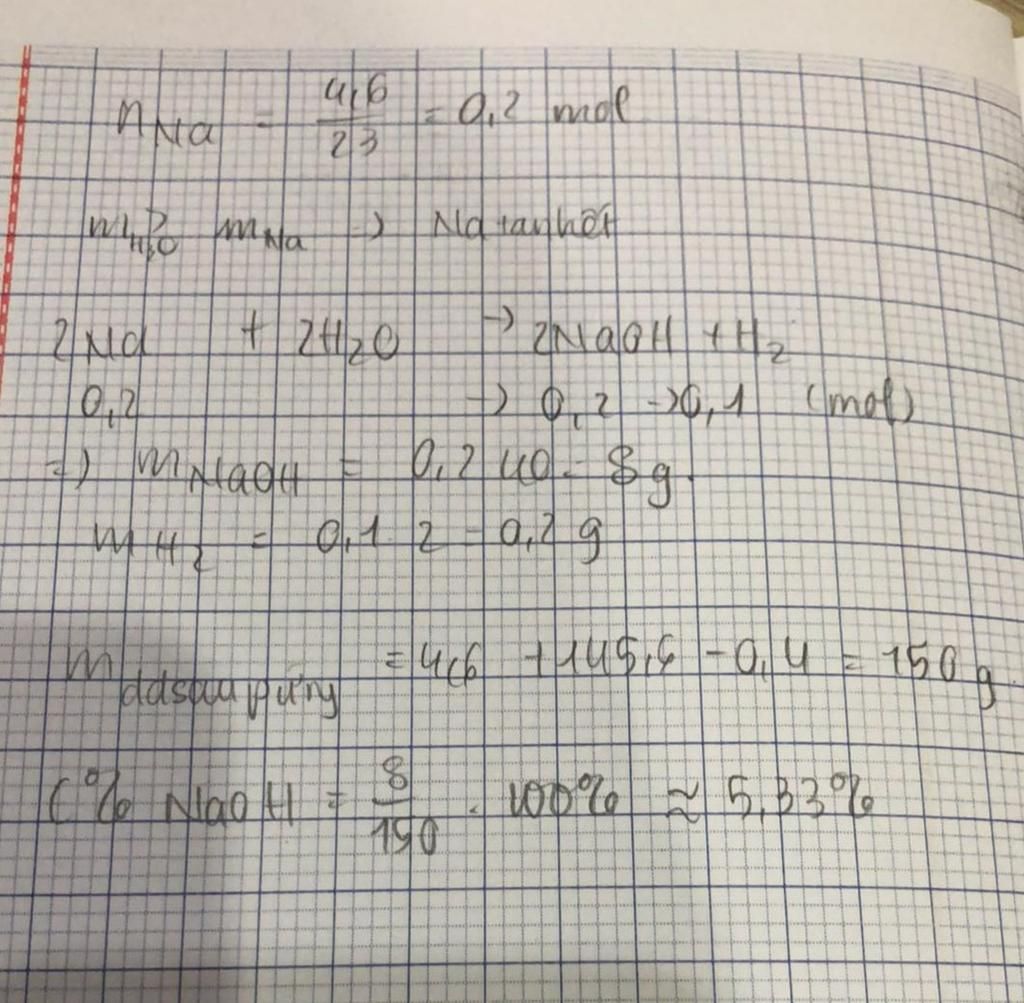 nNa = 4,6/23 = 0,2 mol
mH2O > mNa → Na tan hết
2Na + 2H2O → 2NaOH + H2
0,2 → 0,2 → 0,1 (mol)
=) mNaOH = 0,2 40 = 8 g.
mH2 = 0,1. 2 = 0,2 g
mddsau pứng = 4,6 + 145,6 - 0,4 = 150 g
C% NaOH = 8/150 . 100% ≈ 5,33%